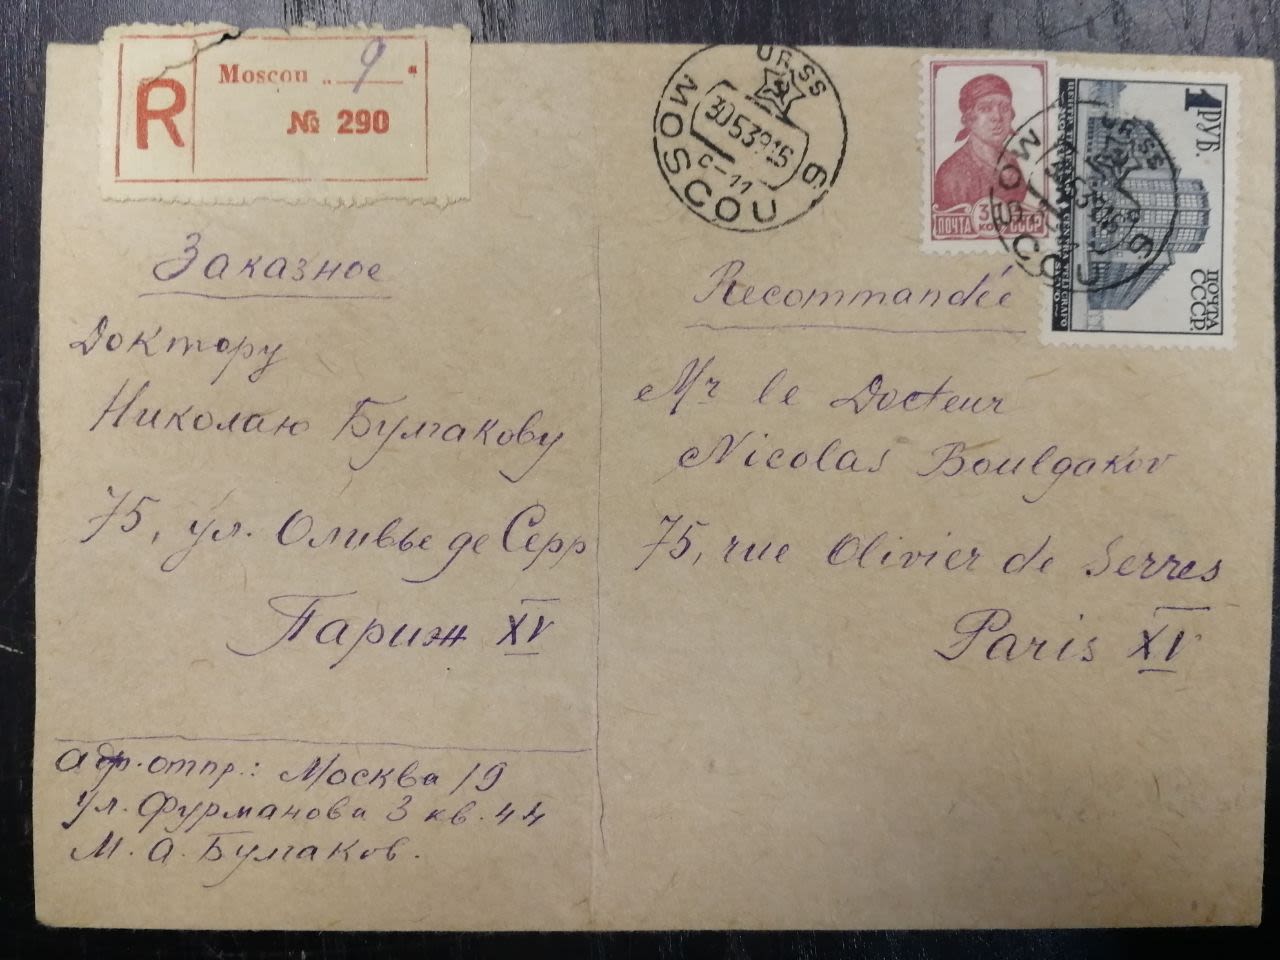 R
Moscou „ 9 “
№ 290
UR.SS
30 5 39 16
c-11
MOSCOU 9
ПОЧТА
3 КОП СССР
1 РУБ.
ПОЧТА
СССР
UR.SS
Заказное
Доктору
Николаю Булгакову
75, ул. Оливье де Серр
Париж XV
адр. отпр.: Москва 19
ул. Фурманова 3 кв. 44
М. А. Булгаков.
Recommandée
Mr le Docteur
Nicolas Boulgakov
75, rue Olivier de Serres
Paris XV